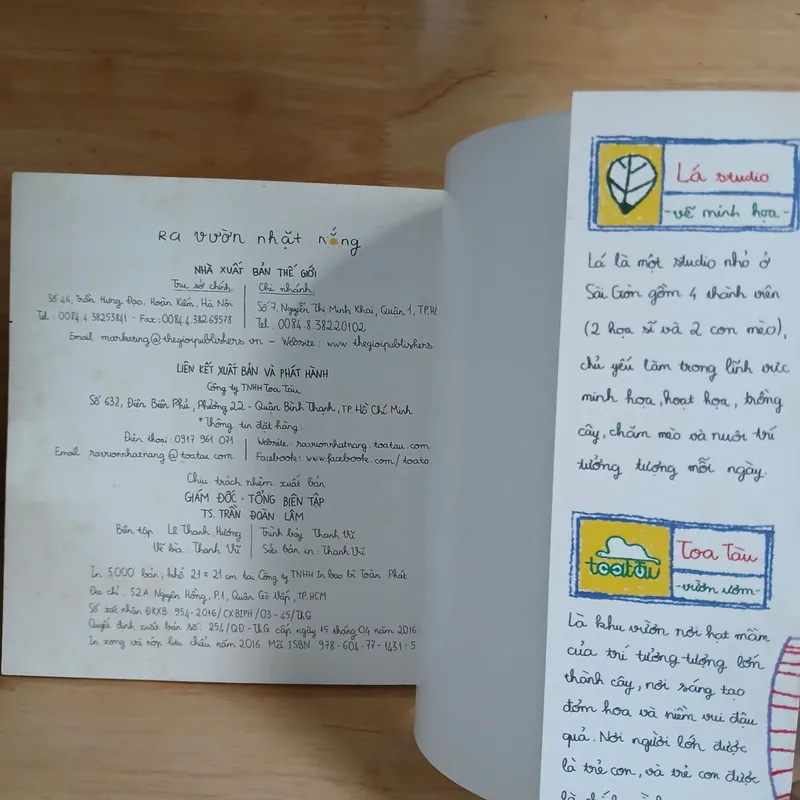 Ra vườn nhặt nắng
NHÀ XUẤT BẢN THẾ GIỚI
Trụ sở chính:
Số 46, Trần Hưng Đạo, Hoàn Kiếm, Hà Nội
Tel: 0084.4.38253841 - Fax: 0084.4.38269578
Chi nhánh:
Số 7, Nguyễn Thị Minh Khai, Quận 1, TP.
Tel: 0084.8.38220102
Email: marketing@thegioipublishers.vn - Website: www.thegioipublishers
LIÊN KẾT XUẤT BẢN VÀ PHÁT HÀNH
Công ty TNHH Toa Tàu
Số 632, Điện Biên Phủ, Phường 22 - Quận Bình Thạnh, TP. Hồ Chí Minh
*Thông tin đặt hàng:
Điện thoại: 0917 961 071
Email: ravuonnhatnang@toatau.com
Website: ravuonnhatnang.toatau.com
Facebook: www.facebook.com/toata
Chịu trách nhiệm xuất bản
GIÁM ĐỐC - TỔNG BIÊN TẬP
TS. TRẦN ĐOÀN LÂM
Biên tập: Lê Thanh Hương
Vẽ bìa: Thanh Vũ
Trình bày: Thanh Vũ
Sửa bản in: Thanh Vũ
In 5.000 bản, khổ 21 x 21 cm tại Công ty TNHH In bao bì Toàn Phát
Địa chỉ: 52A Nguyên Hồng, P.1, Quận Gò Vấp, TP.HCM
Số xác nhận ĐKXB: 954-2016/CXBIPH/03-45/ThG
Quyết định xuất bản số: 254/QĐ-ThG cấp ngày 15 tháng 04 năm 2016.
In xong và nộp lưu chiểu năm 2016. Mã ISBN: 978-604-77-1431-5
Lá studio
-vẽ minh họa-
Lá là một studio nhỏ ở
Sài Gòn gồm 4 thành viên
(2 họa sĩ và 2 con mèo),
chủ yếu làm trong lĩnh vực
minh họa, hoạt họa, trồng
cây, chăm mèo và nuôi trí
tưởng tượng mỗi ngày.
toatàu
Toa Tàu
-vườn ươm-
Là khu vườn nơi hạt mầm
của trí tưởng tượng lớn
thành cây, nơi sáng tạo
đơm hoa và niềm vui đậu
quả. Nơi người lớn được
là trẻ con, và trẻ con được